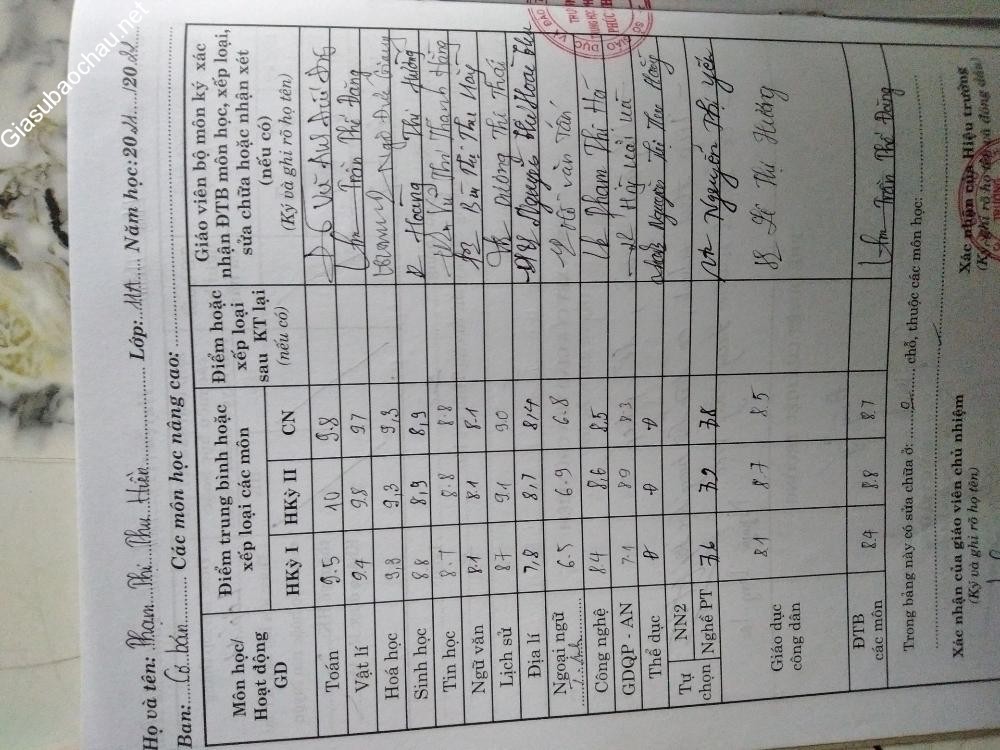 Giasubaochau.net
Họ và tên: Phạm Thị Thu Hiền Lớp: 11A Năm học: 20 21 /20 22
Ban: Cơ bản Các môn học nâng cao:
Môn học/ Hoạt động GD
Điểm trung bình hoặc xếp loại các môn
HKỳ I HKỳ II CN
Điểm hoặc xếp loại sau KT lại (nếu có)
Giáo viên bộ môn ký xác nhận ĐTB môn học, xếp loại, sửa chữa hoặc nhận xét (nếu có)
(Ký và ghi rõ họ tên)
Toán 9.5 10 9.8
Vật lí 9.4 9.8 9.7 Trần Thế Đăng
Hoá học 9,3 9,3 9,3
Sinh học 8.8 8,9 8,9 Hoàng Thị Hường
Tin học 8.7 8.8 8.8 Vũ Thị Thanh Hằng
Ngữ văn 8.1 8.1 8.1 Bùi Thị Thu Hằng
Lịch sử 8.7 9.1 9.0 Dương Thị Thái
Địa lí 7,8 8,7 8,4 Nguyễn Thị Hoài Thu
Ngoại ngữ 6.5 6.9 6.8
T. Anh
Công nghệ 8.4 8,6 8,5 Phạm Thị Hà
GDQP - AN 7.1 8.9 8.3
Thể dục Đ Đ Đ Nguyễn Thị Thu Hằng
Tự chọn NN2
Nghề PT 7.6 7.9 7.8 Nguyễn Thị Yến
Giáo dục công dân 8.1 8.7 8.5 Lê Thị Hường
ĐTB các môn 8.4 8.8 8.7 Trần Thế Đăng
Trong bảng này có sửa chữa ở: 0 chỗ, thuộc các môn học:
Xác nhận của giáo viên chủ nhiệm Xác nhận của Hiệu trưởng
(Ký và ghi rõ họ tên) (Ký, ghi rõ họ tên và đóng dấu)